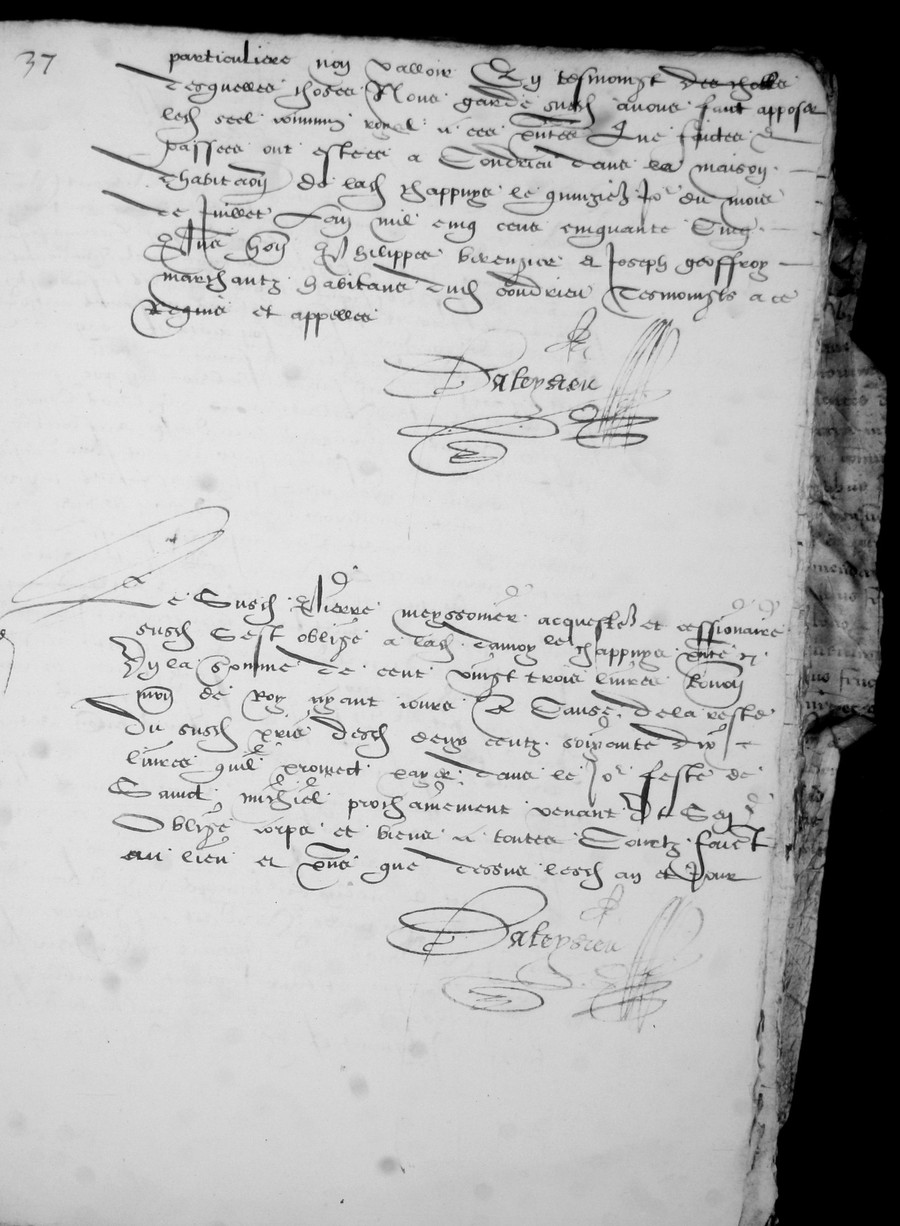 37
particuliere non valloir En tesmoingt des
desquelles choses Nous garde susd avons faict apposer
led seel commun royal a ces pntes Que faictes &
passees ont estees a Condrieu dans la maison
dhabitaon de lad Chappuys le quinzies Jor du mois
de Juillet Lan mil cinq cens cinquante Cinq
Pns hon Philippes berengier et Joseph geoffroy
marchantz habitans dud Condrieu Tesmoings a ce
Requis et appelles
Daleysieu
Le Susd Pierre meyssonier acquesteur et cessionaire
susd Cest oblige a lad damoy.lle chappuys pnte &
En la somme de cent vingt trois livres
de Roy ayant cours Et Cause de la reste
du susd pris desd deux centz soixante dix
livres quil promect payer dans le Jor feste de
Sainct michiel prochainement venant
Oblige corps et biens a toutes Courtz faict
au lieu et pns que dessus lesd an et Jour
Daleysieu